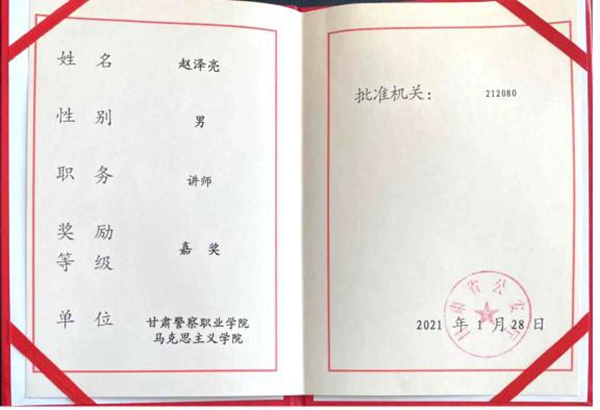 姓名 赵泽亮
性别 男
职务 讲师
奖励
等级 嘉奖
单位 甘肃警察职业学院
马克思主义学院
批准机关： 212080
甘肃省公安厅
2021 年 1 月 28 日